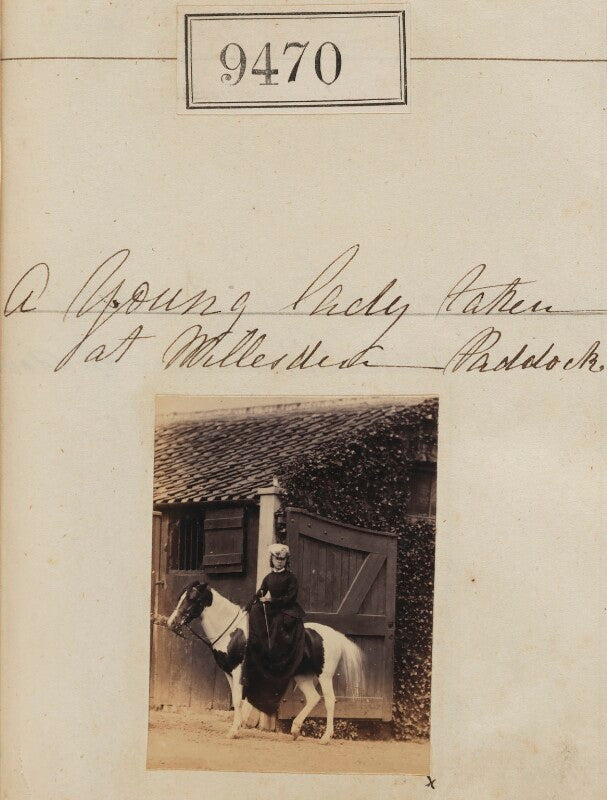 9470
A Young lady taken
at Willesden Paddock.
x